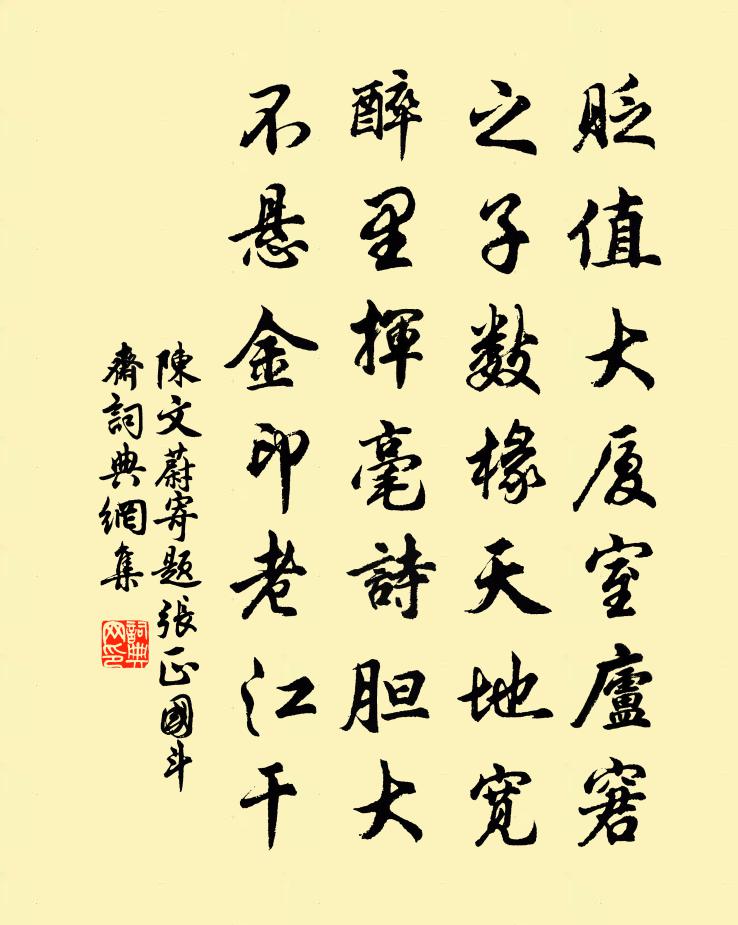 貶值大厦室廬窘
之子数椽天地寬
醉里揮毫詩胆大
不悬金印老江干
陳文蔚寄題張正國斗
齋詞典網集
詞典网印